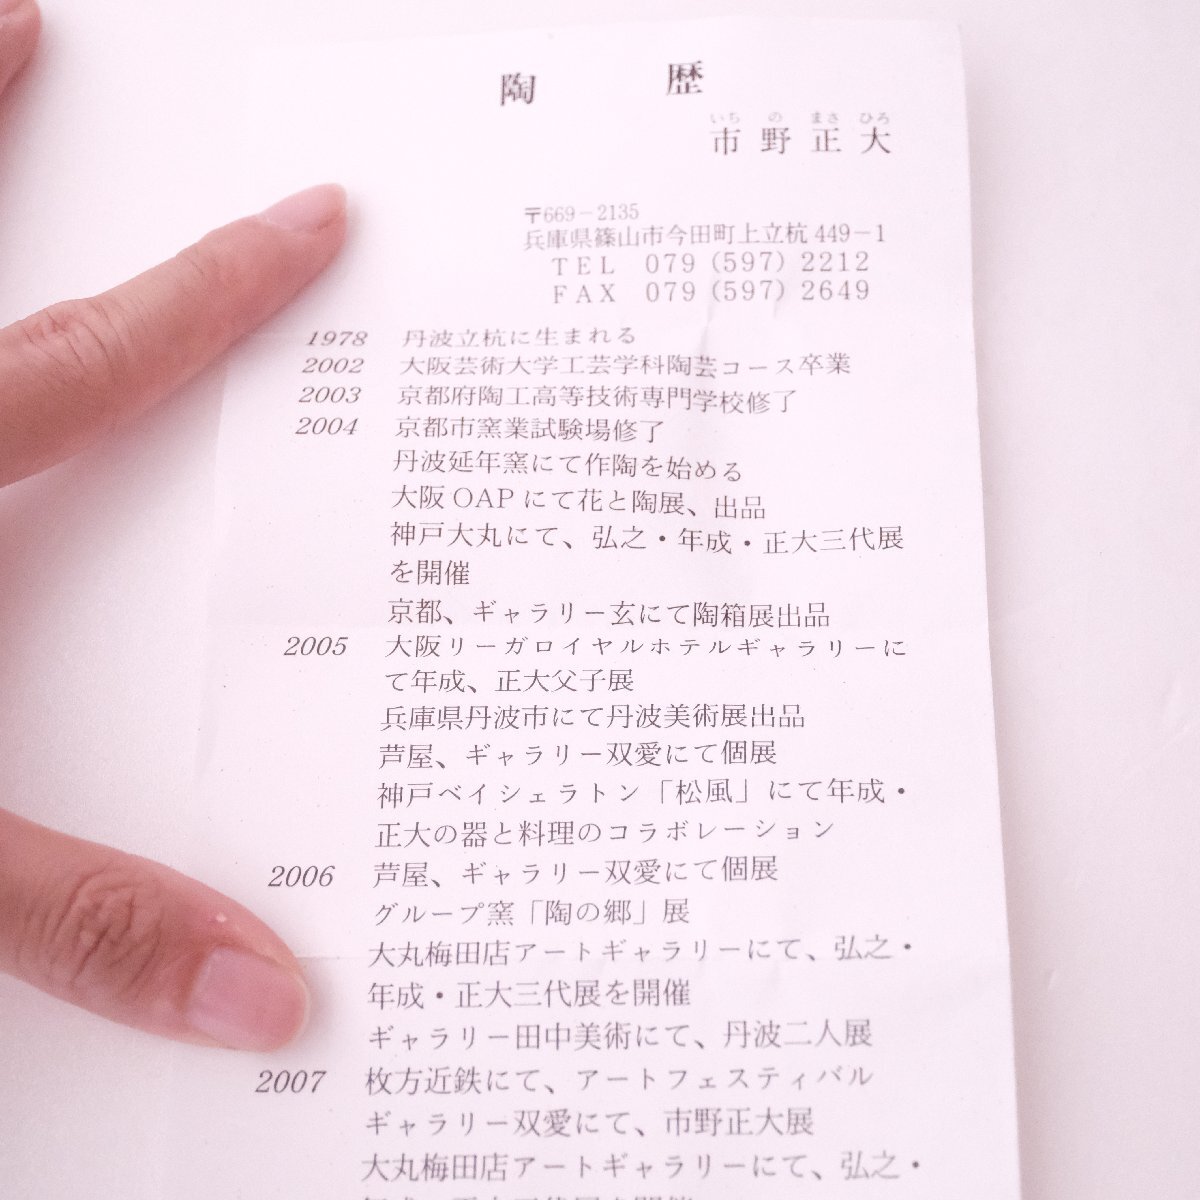 陶 歴
いち の まさ ひろ
市野正大
〒669-2135
兵庫県篠山市今田町上立杭449-1
TEL 079 (597) 2212
FAX 079 (597) 2649
1978 丹波立杭に生まれる
2002 大阪芸術大学工芸学科陶芸コース卒業
2003 京都府陶工高等技術専門学校修了
2004 京都市窯業試験場修了
丹波延年窯にて作陶を始める
大阪OAPにて花と陶展、出品
神戸大丸にて、弘之・年成・正大三代展
を開催
京都、ギャラリー玄にて陶箱展出品
2005 大阪リーガロイヤルホテルギャラリーに
て年成、正大父子展
兵庫県丹波市にて丹波美術展出品
芦屋、ギャラリー双愛にて個展
神戸ベイシェラトン「松風」にて年成・
正大の器と料理のコラボレーション
2006 芦屋、ギャラリー双愛にて個展
グループ窯「陶の郷」展
大丸梅田店アートギャラリーにて、弘之・
年成・正大三代展を開催
ギャラリー田中美術にて、丹波二人展
2007 枚方近鉄にて、アートフェスティバル
ギャラリー双愛にて、市野正大展
大丸梅田店アートギャラリーにて、弘之・